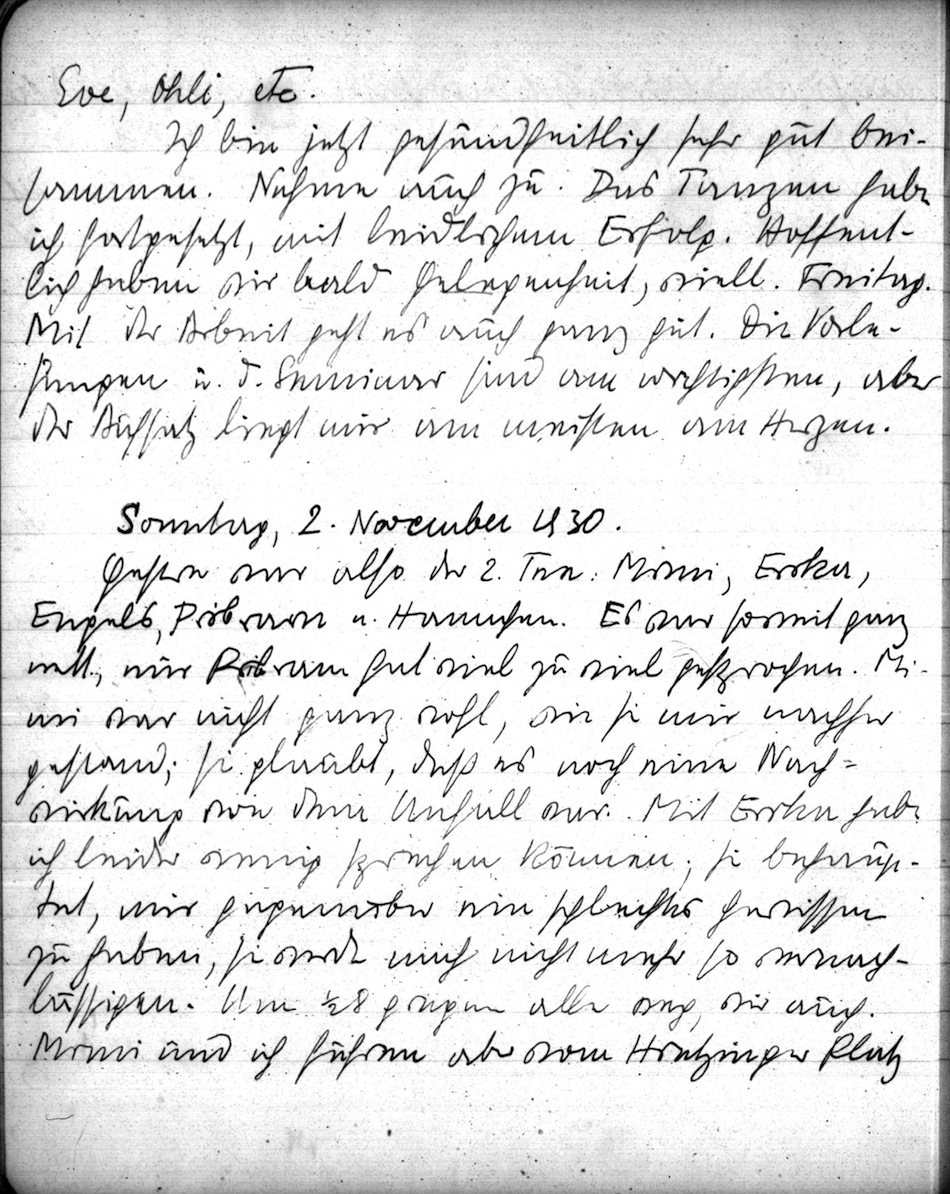 Eve, Ohli, etc.
Ich bin jetzt gesundheitlich sehr gut bei-
sammen. Nehme auch zu. Das Tanzen habe
ich fortgesetzt, mit leidlichem Erfolg. Hoffent-
lich haben wir bald Gelegenheit, viell. Freitag.
Mit der Arbeit geht es auch ganz gut. Die Vorle-
sungen u. d. Seminar sind am wichtigsten, aber
der Aufsatz liegt mir am meisten am Herzen.
Sonntag, 2. November 1930.
Gestern war also der 2. Tee: Mimi, Erika,
Engels, Pribram u. Hannchen. Es war soweit ganz
nett, nur Pribram hat viel zu viel gesprochen. Mi-
mi war nicht ganz wohl, wie sie mir nachher
gestand; sie glaubt, daß es noch eine Nach-
wirkung von dem Unfall war. Mit Erika habe
ich leider wenig sprechen können; sie behaup-
tet, mir gegenüber ein schlechtes Gewissen
zu haben, sie werde mich nicht mehr so vernach-
lässigen. Um ½8 gingen alle weg, wir auch.
Mimi und ich fuhren aber vom Platz